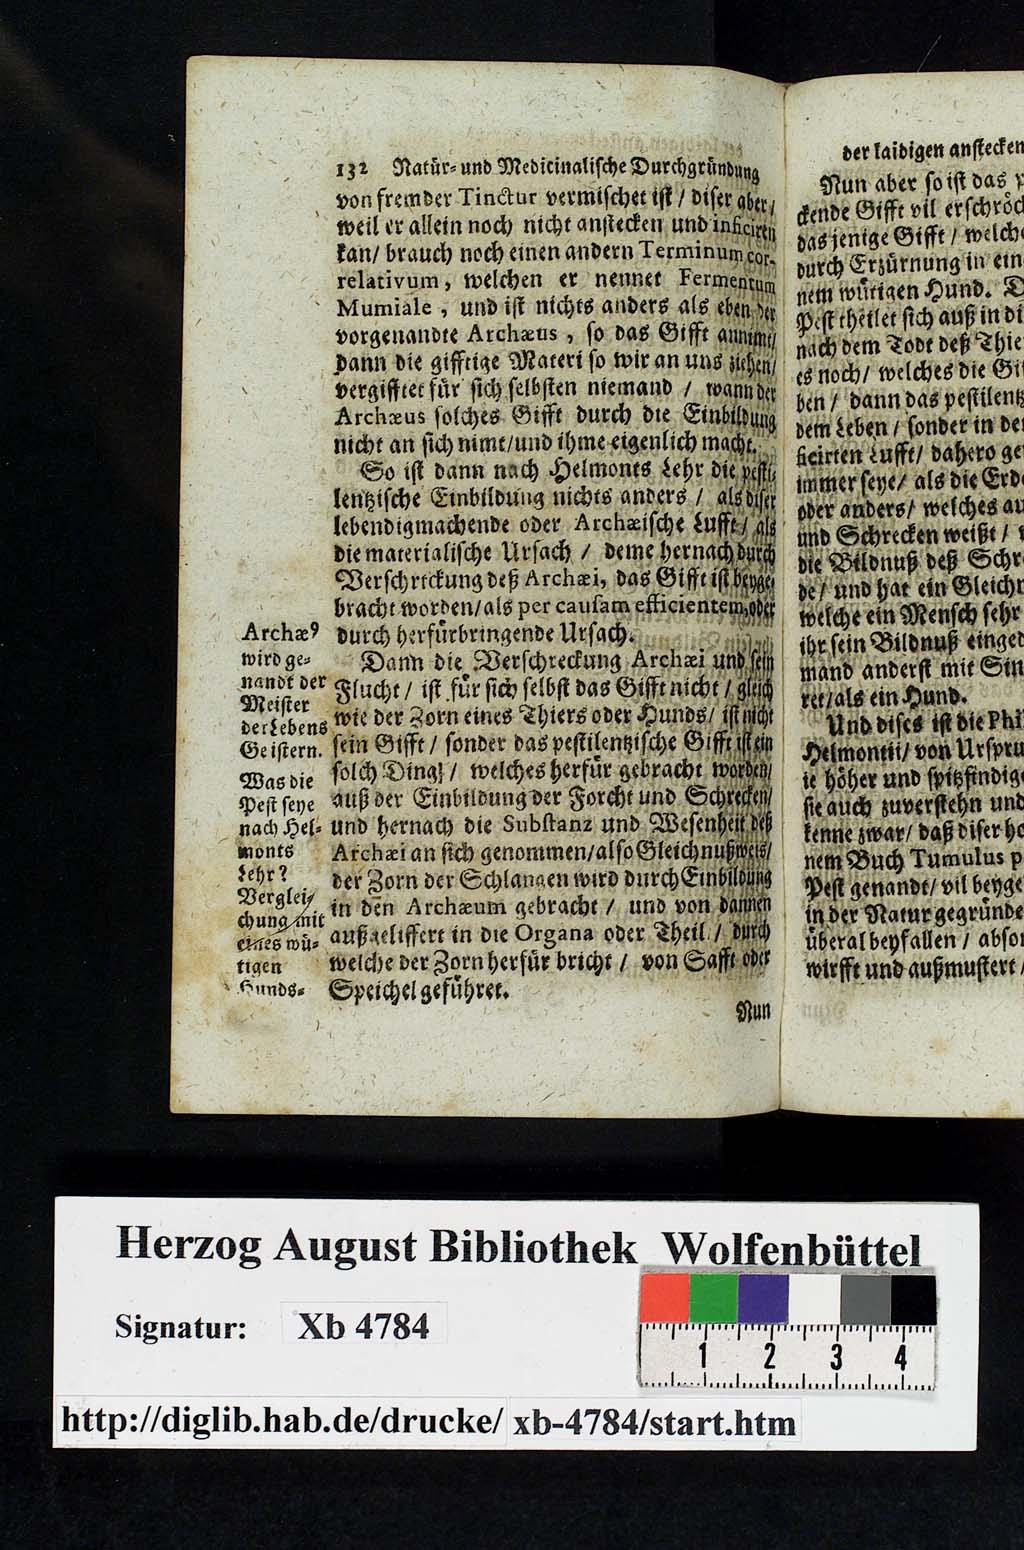 132 Natür- und Medicinalische Durchgründung
von fremder Tinctur vermischet ist / diser aber /
weil er allein noch nicht anstecken und inficiren
kan / brauch noch einen andern Terminum cor-
relativum, welchen er nennet Fermentum
Mumiale, und ist nichts anders als eben der
vorgenandte Archæus, so das Gifft annimt /
dann die gifftige Materi so wir an uns ziehen /
vergifftet für sich selbsten niemand / wann der
Archæus solches Gifft durch die Einbildung
nicht an sich nimt / und ihme eigenlich macht.
So ist dann nach Helmonts Lehr die pesti-
lentzische Einbildung nichts anders / als diser
lebendigmachende oder Archæische Lufft / als
die materialische Ursach / deme hernach durch
Verschrickung deß Archæi, das Gifft ist beyge-
bracht worden / als per causam efficientem, oder
durch herfürbringende Ursach.
Dann die Verschreckung Archæi und sein
Flucht / ist für sich selbst das Gifft nicht / gleich
wie der Zorn eines Thiers oder Hunds / ist nicht
sein Gifft / sonder das pestilentzische Gifft ist ein
solch Ding / welches herfür gebracht worden /
auß der Einbildung der Forcht und Schrecken /
und hernach die Substanz und Wesenheit deß
Archæi an sich genommen / also Gleichnußweis /
der Zorn der Schlangen wird durch Einbildung
in den Archæum gebracht / und von dannen
außgeliffert in die Organa oder Theil / durch
welche der Zorn herfür bricht / von Safft oder
Speichel geführet.
Nun
Archæ9
wird ge-
nandt der
Meister
der Lebens
Geistern.
Was die
Pest seye
nach Hel-
monts
Lehr?
Verglei-
chung mit
eines wü-
tigen
Hunds-
der laidigen anstecken
Nun aber so ist das
ckende Gifft vil erschröc
das jenige Gifft / welche
durch Erzürnung in ein
nem wütigen Hund. D
Pest theilet sich auß in di
nach dem Todt deß Thie
es noch / welches die Gi
ben / dann das pestilentz
dem Leben / sonder in de
ficirten Lufft / dahero ge
immer seye / als die Erd
oder anders / welches au
und Schrecken weißt /
die Bildnuß deß Schr
de / und hat ein Gleichn
welche ein Mensch sehr
ihr sein Bildnuß einged
mand anderst mit Sin
ret / als ein Hund.
Und dises ist die Phi
Helmontii / von Urspru
ie höher und spitzfindige
sie auch zuverstehn und
kenne zwar / daß diser ho
nem Buch Tumulus p
Pest genandt / vil beyge
in der Natur gegründe
überal beyfallen / abson
wirfft und außmustert /
Herzog August Bibliothek Wolfenbüttel
Signatur: Xb 4784
1 2 3 4
http://diglib.hab.de/drucke/ xb-4784/start.htm